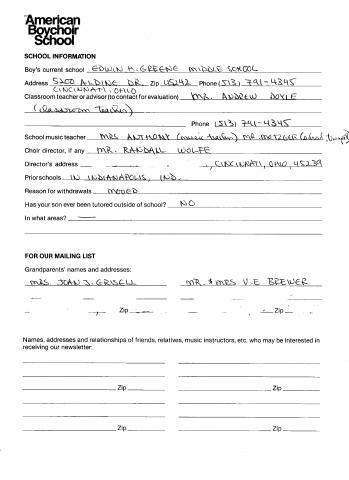 American
Boychoir
School
SCHOOL INFORMATION
Boy's current school EDWIN H. GREENE MIDDLE SCHOOL
Address 5200 ALDINE DR. Zip 45242 Phone (513) 791-4345
CINCINNATI, OHIO
Classroom teacher or advisor (to contact for evaluation) MR. ANDREW DOYLE
(classroom teacher)
Phone (513) 791-4345
School music teacher MRS ANTHONY (music teacher) MR. METZGER
Choir director, if any MR. RANDALL WOLFE
Director's address , CINCINNATI, OHIO, 45239
Prior schools IN INDIANAPOLIS, IND.
Reason for withdrawals MOVED
Has your son ever been tutored outside of school? NO
In what areas? —
FOR OUR MAILING LIST
Grandparents' names and addresses:
MRS. JOAN J. GRISELL MR. & MRS. V.E BREWER
Zip Zip
Names, addresses and relationships of friends, relatives, music instructors, etc. who may be interested in
receiving our newsletter:
Zip Zip
Zip Zip